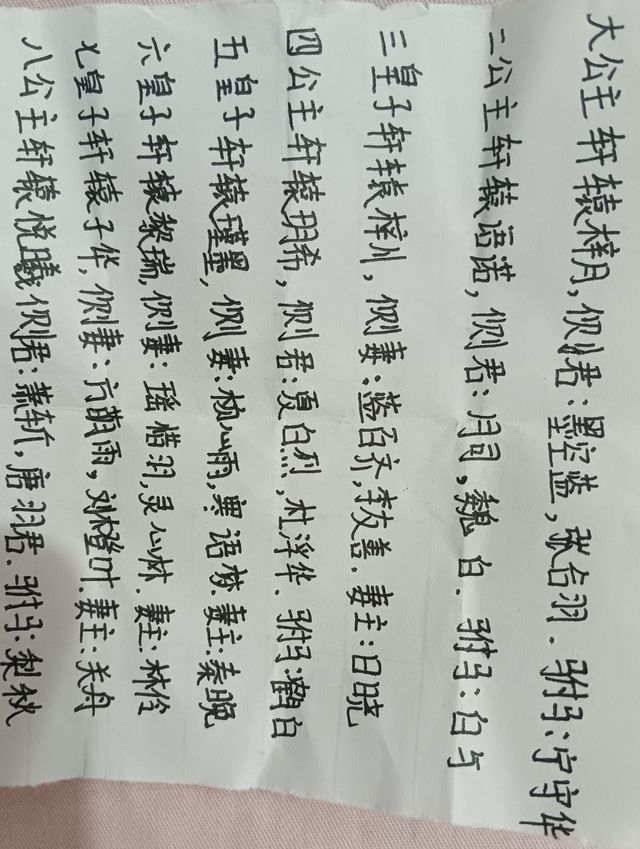 大公主轩辕梓月,侧君:墨空蓝,张台羽.驸马:宁守华
二公主轩辕语诺,侧君:月司,魏白.驸马:白与
三皇子轩辕梓川,侧妻:蓝百齐,李友善.妻主:日晓
四公主轩辕玥希,侧君:夏白烈,杜浮华.驸马:鹤白
五皇子轩辕瑾墨,侧妻:杨心雨,粤语梦.妻主:秦晚
六皇子轩辕黎瑞,侧妻:瑶惜羽,灵心林.妻主:林伶
七皇子轩辕子华,侧妻:方萌雨,刘橙叶.妻主:关舟
八公主轩辕悦曦侧君:萧斩,唐羽君.驸马:梨秋